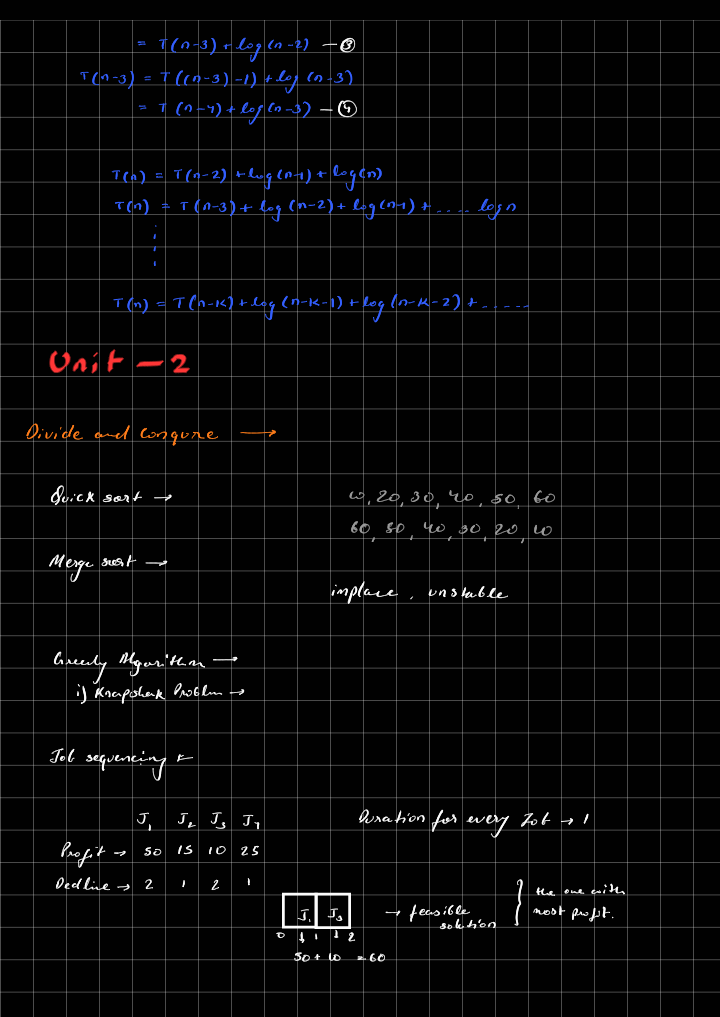 = T(n-3) + log(n-2) — ③
T(n-3) = T((n-3)-1) + log (n-3)
= T(n-4) + log(n-3) — ④
T(n) = T(n-2) + log(n-1) + log(n)
T(n) = T(n-3) + log(n-2) + log(n-1) + .... log n
T(n) = T(n-K) + log(n-K-1) + log(n-K-2) + ......
Unit - 2
Divide and Conqure →
Quick sort → 10, 20, 30, 40, 50, 60
60, 50, 40, 30, 20, 10
Merge sort →
inplace, unstable
Greedy Algorithm →
i) Knapshak Problem →
Job sequencing ←
J1 J2 J3 J4 Duration for every Job → 1
Profit → 50 15 10 25
Dedline → 2 1 2 1
J1 J3 → feasible solution } the one with most profit.
0 1 2
50 + 10 = 60